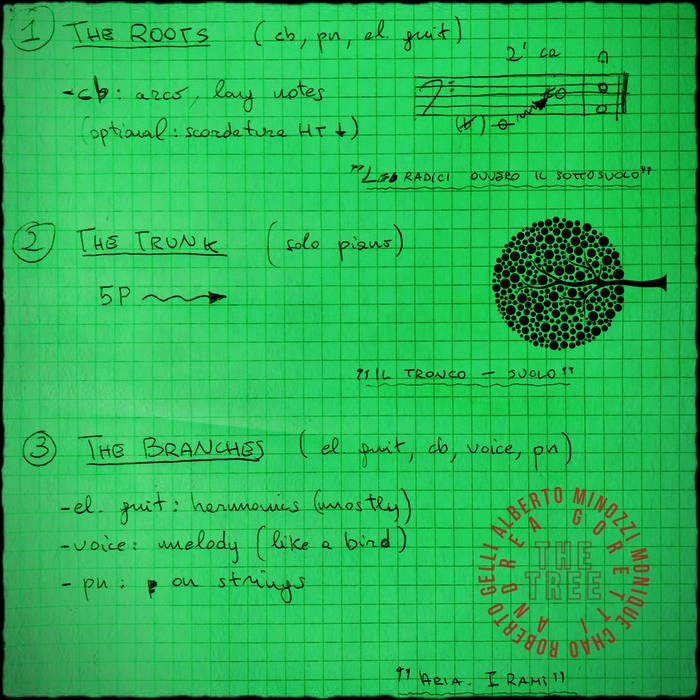 1 THE ROOTS (cb, pn, el. guit)
2' ca
- cb: arco, long notes
(optional: scordatura HT ↓)
(b)
"LE RADICI OVVERO IL SOTTOSUOLO"
2 THE TRUNK (solo piano)
5P
"IL TRONCO - SUOLO"
3 THE BRANCHES (el. guit, cb, voice, pn)
- el. guit: harmonics (mostly)
- voice: melody (like a bird)
- pn: on strings
ROBERTO GELLI ALBERTO MINOZZI MONIQUE CHAO
ANDREA GORETTI
THE
TREE
"ARIA. I RAMI"